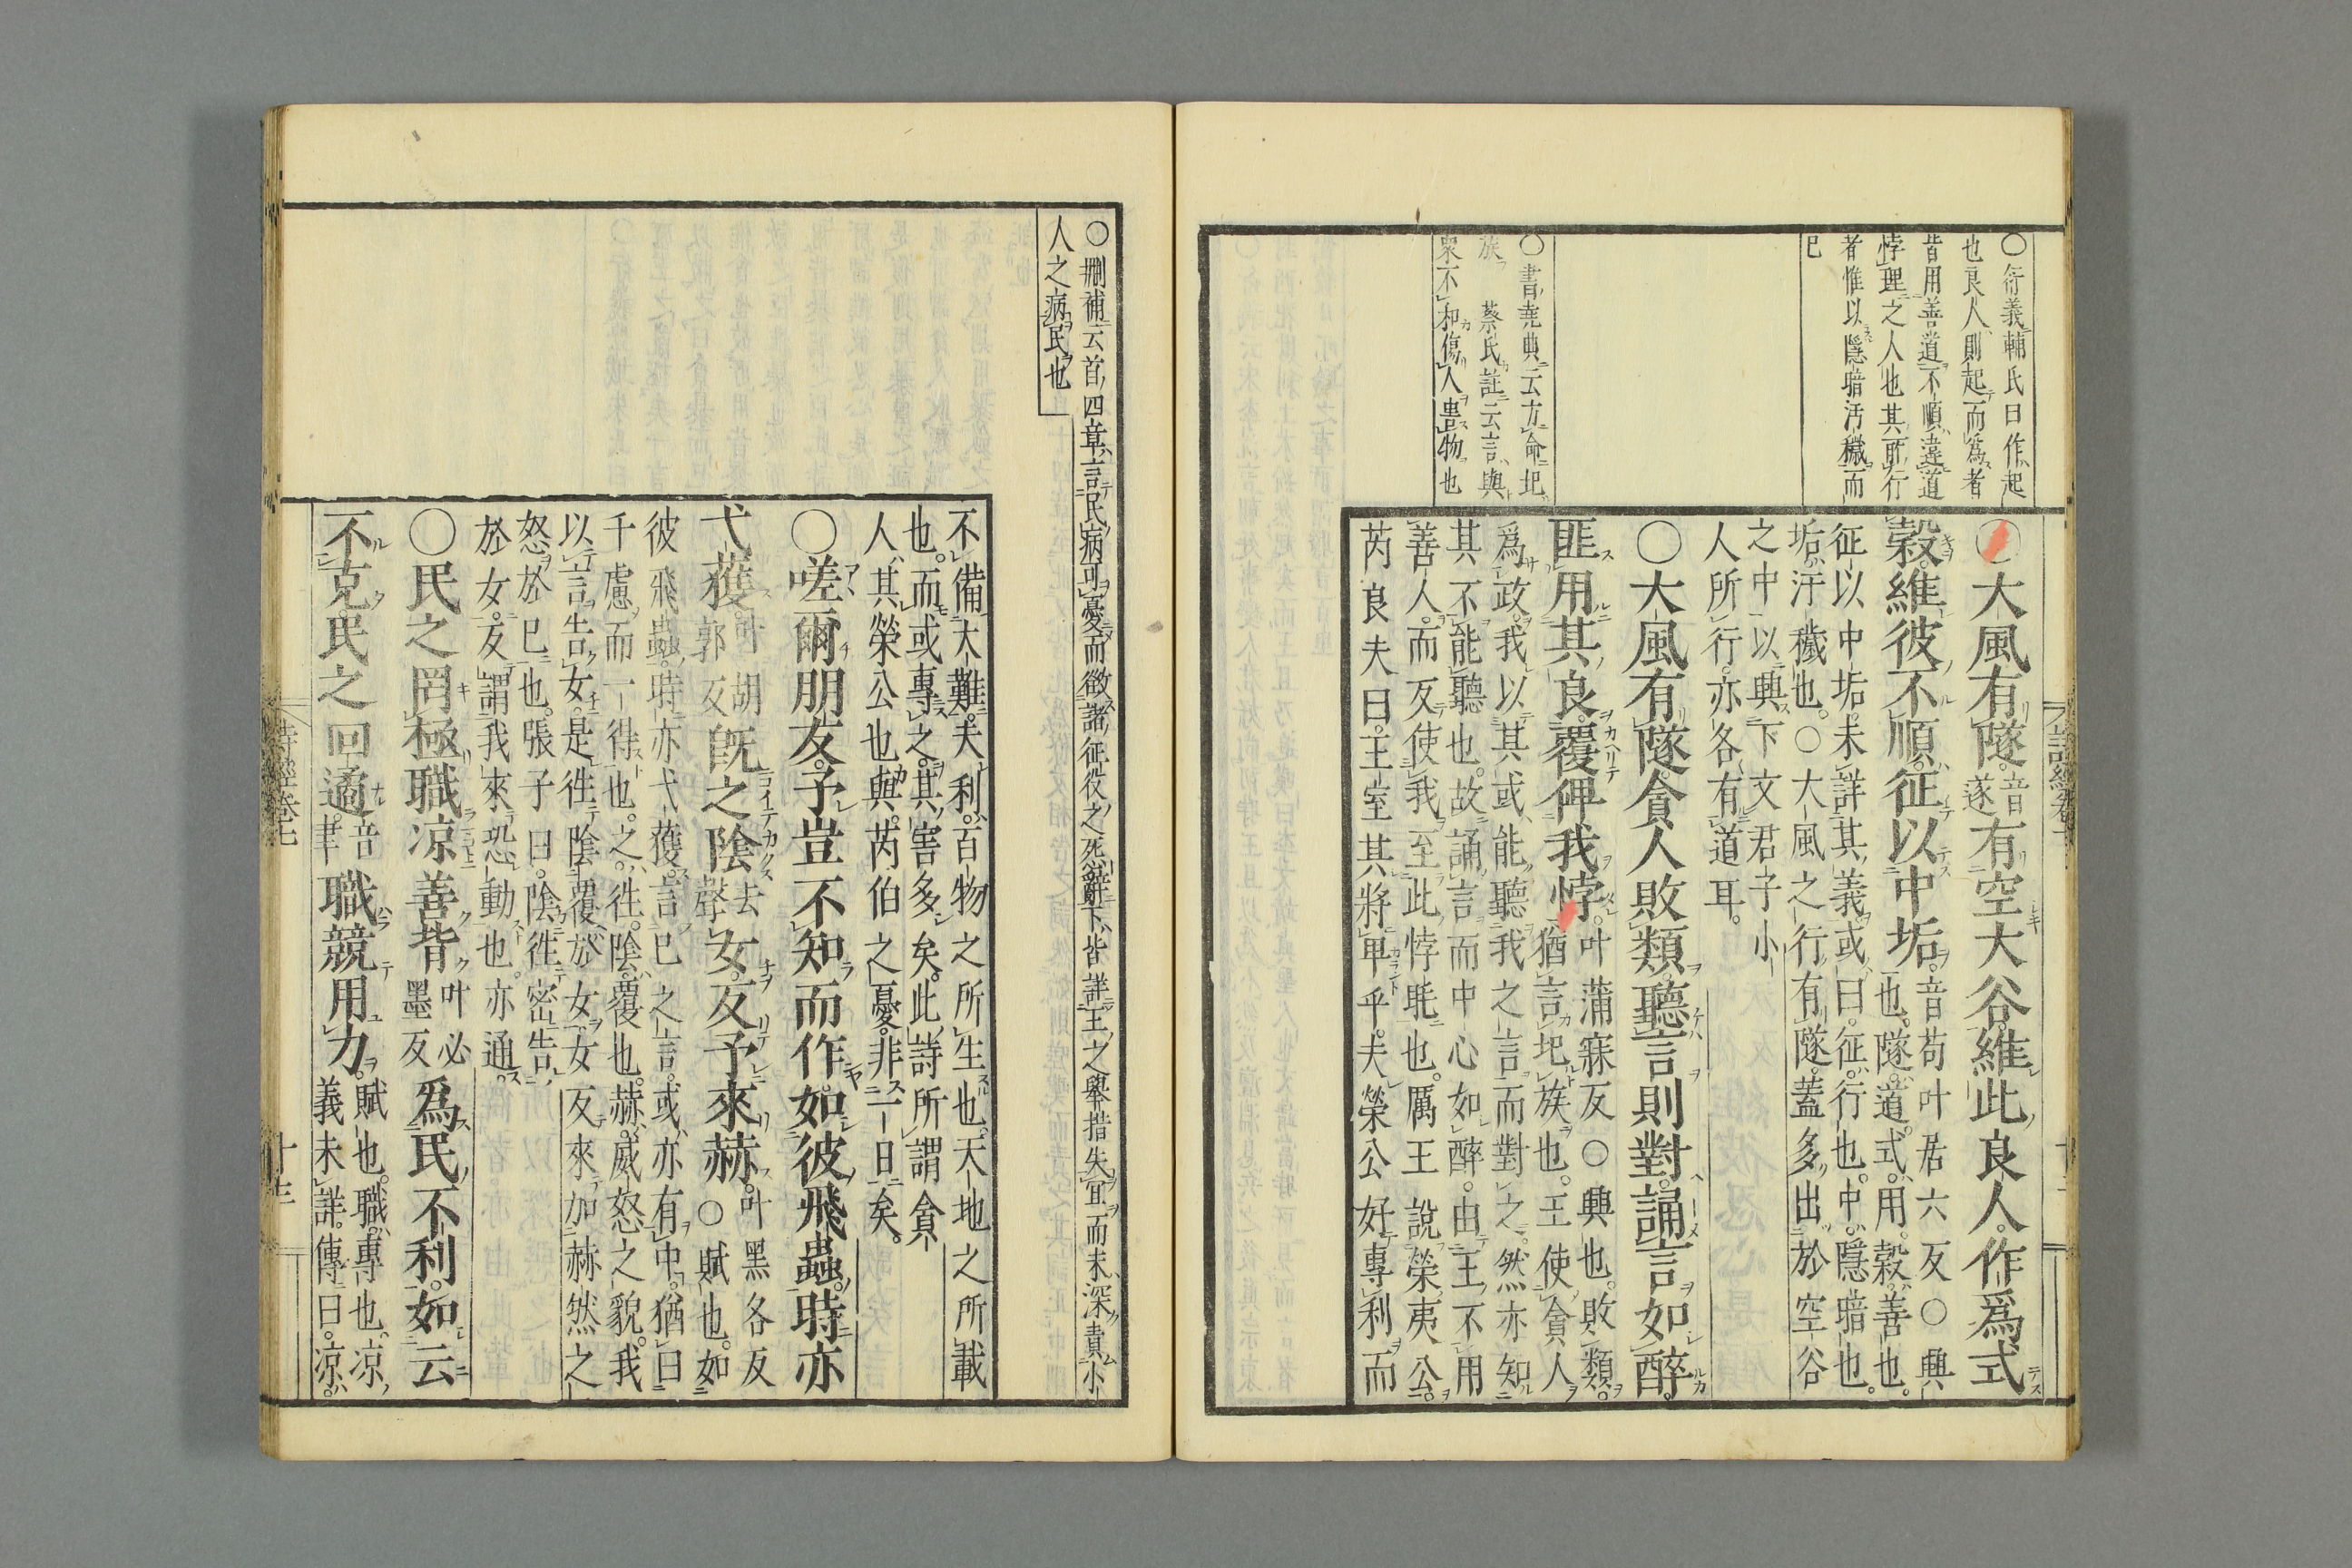 ○衍義輔氏曰作起
也良人則起而爲者
皆用善道不順違道
悖理之人也其所行
者惟以隱暗汚穢而
已
○書堯典云方命圮
族 蔡氏註云言與
衆不和傷人害物也
○大風有隧音遂有空大谷維此良人作爲式
穀維彼不順征以中垢音苟叶居六反○興
也隧道式用穀善也
征以中垢未詳其義或曰征行也中隱暗也
垢汙穢也○大風之行有隧蓋多出於空谷
之中以興下文君子小
人所行亦各有道耳
○大風有隧貪人敗類聽言則對誦言如醉
匪用其良覆俾我悖叶蒲寐反○興也敗類
猶言圮族也王使貪人
爲政我以其或能聽我之言而對之然亦知
其不能聽也故誦言而中心如醉由王不用
善人而反使我至此悖眊也厲王說榮夷公
芮良夫曰王室其將卑乎夫榮公好專利而
○刪補云首四章言民病可憂而徵諸征役之死辭下皆詳王之舉措失宜而未深責小
人之病民也
不備大難夫利百物之所生也天地之所載
也而或專之其害多矣此詩所謂貪
人其榮公也與芮伯之憂非一日矣
○嗟爾朋友予豈不知而作如彼飛蟲時亦
弋獲叶胡郭反旣之陰去聲女反予來赫叶黑各反○賦也如
彼飛蟲時亦弋獲言已之言或亦有中猶曰
千慮而一得也之往陰覆也赫威怒之貌我
以言告女是往陰覆於女女反來加赫然之
怒於己也張子曰陰往密告
於女反謂我來恐動也亦通
○民之罔極職凉善背叶必墨反爲民不利如云
不克民之回遹音聿職競用力賦也職專也凉
義未詳傳曰凉
詩經卷七
十三